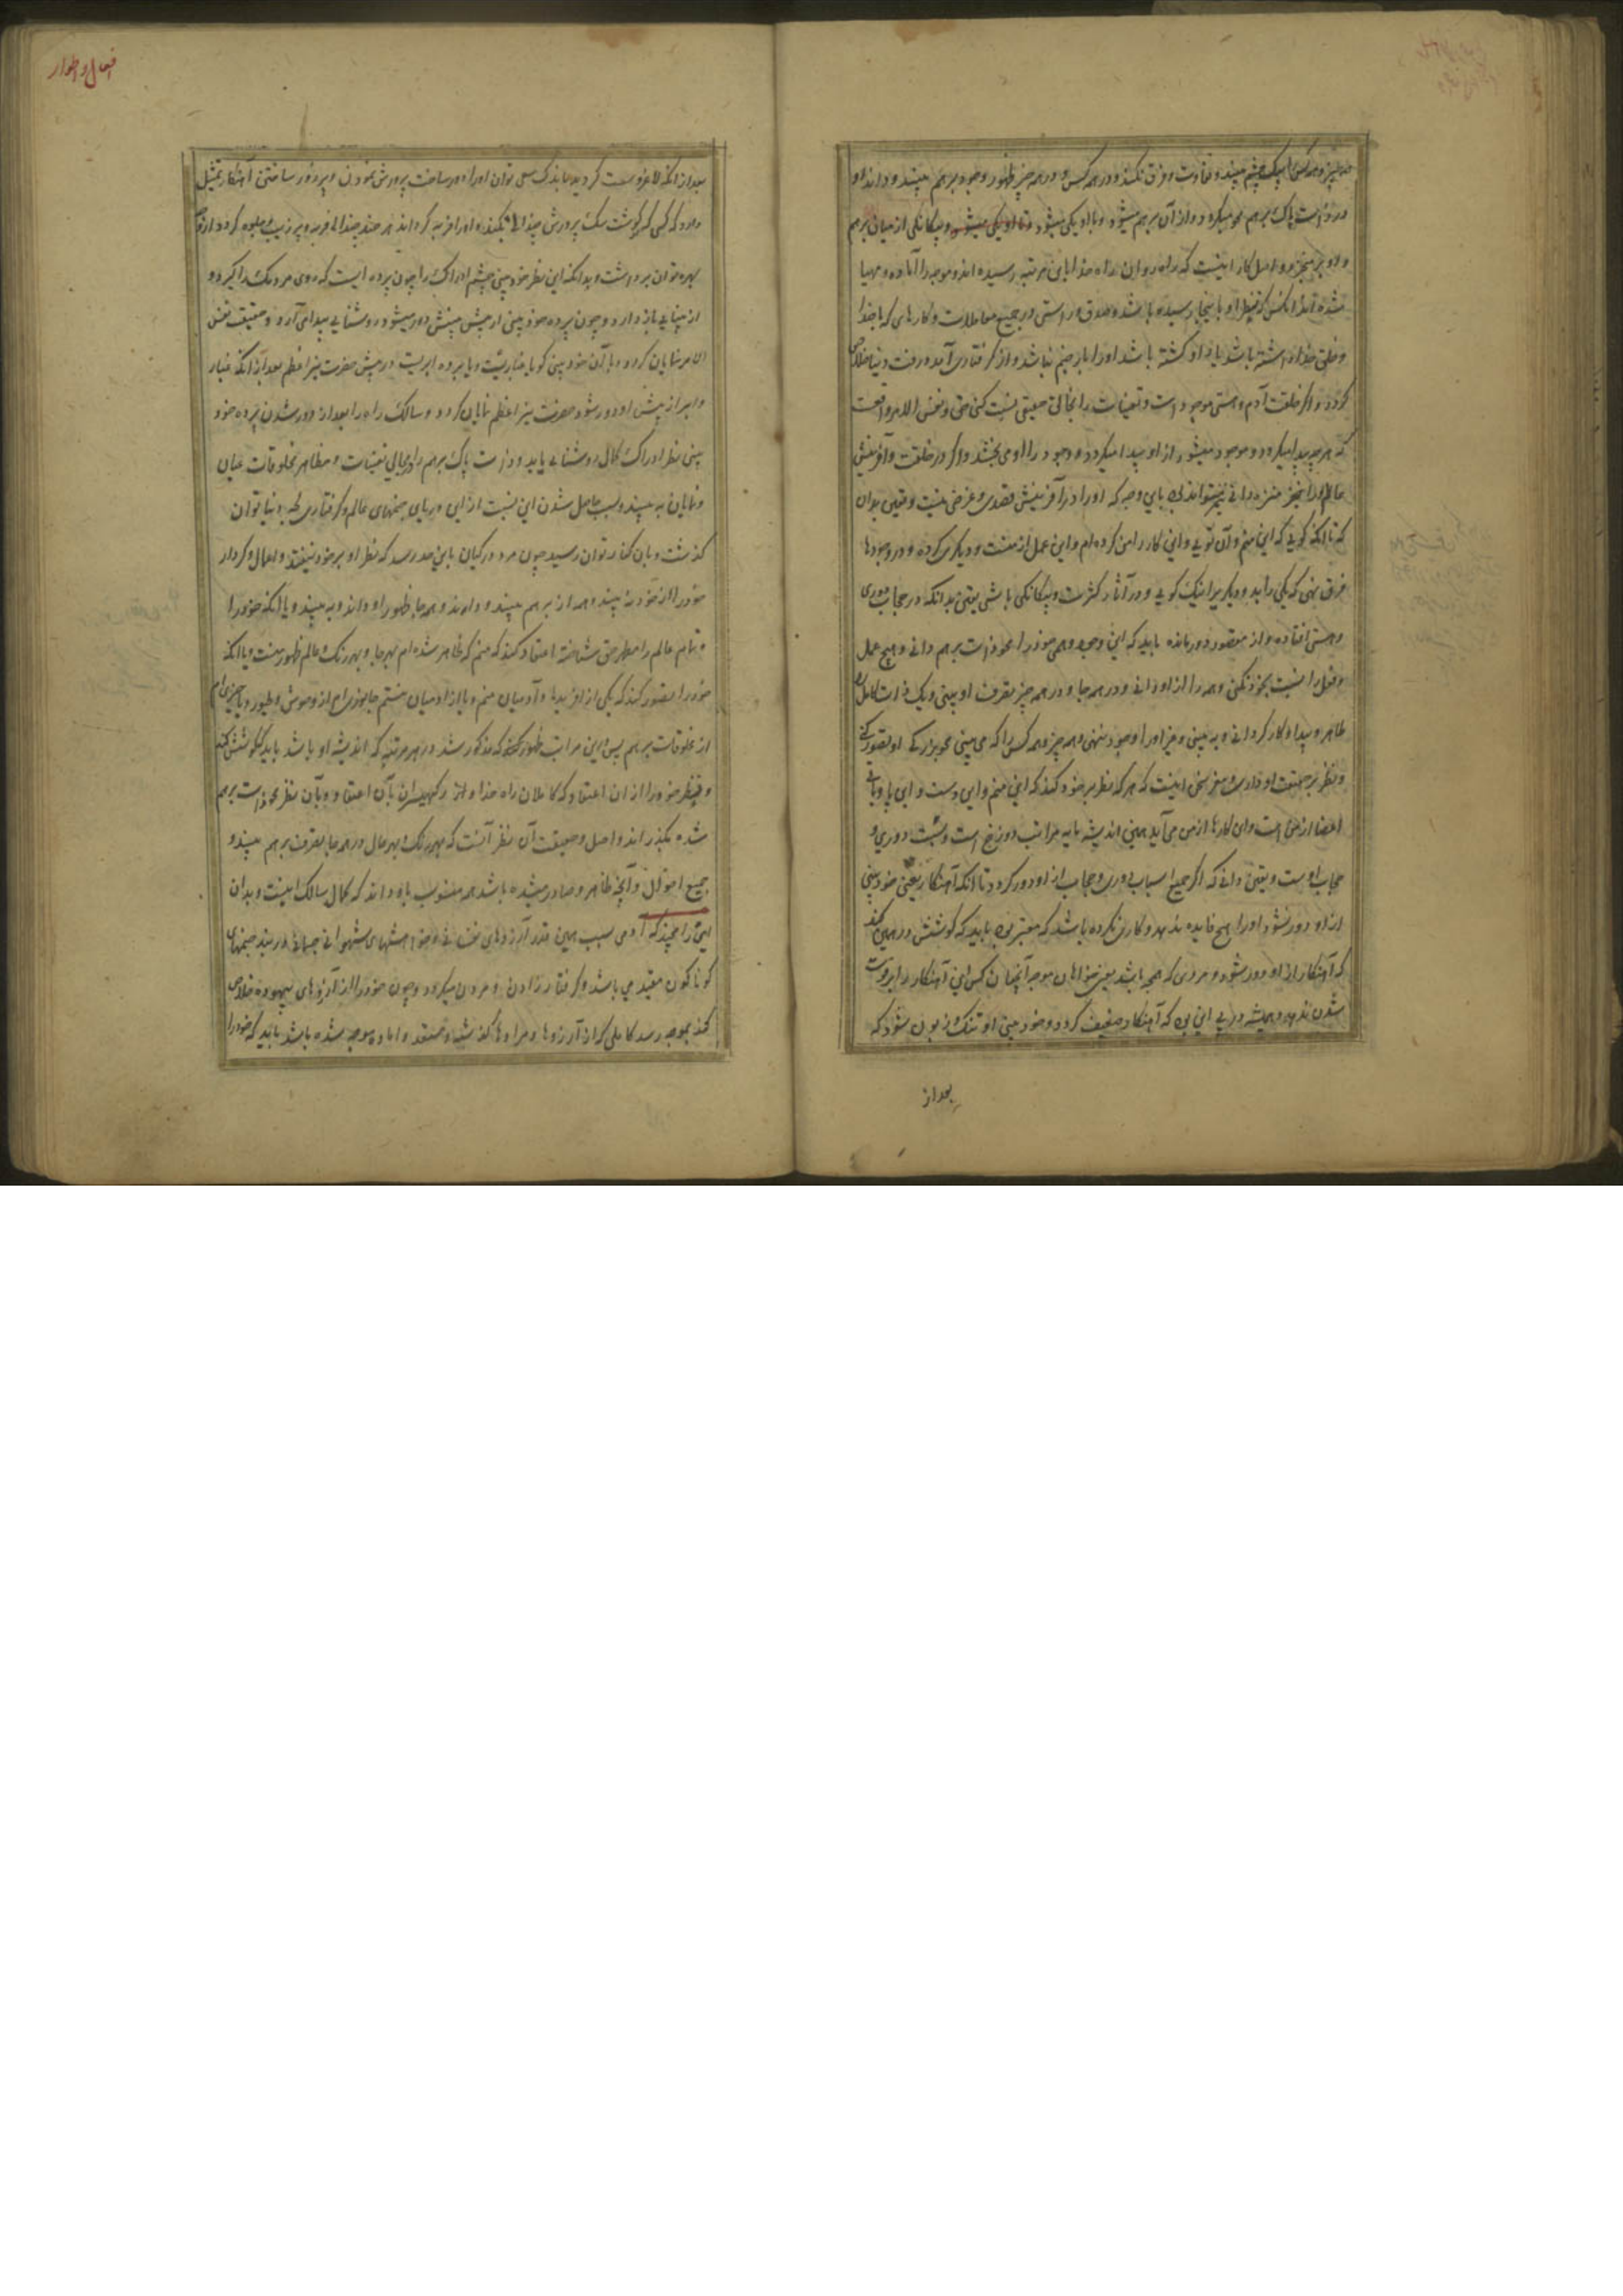 همه چیز و همه کس را بیک چشم بیند و تفاوت و فرق نکند و در همه کس و در همه چیز ظهور وجود برهم بیند و داند او
در ذات پاک برهم محو میگردد و از آن برهم میشود و با او یکی میشود و بیگانگی از میان برهم
و او بر میخیزد و اصل کار اینست که راه روان راه خدا باین مرتبه رسیده اند و موجه را آماده و مهیا
شده اند اما کسی که نظر او باینجا رسیده باشد و صدق و راستی در جمیع معاملات و کارهای که با خدا
و خلق خدا داشته باشد یا از او گشته باشد او را باز جنم نباشد و از گرفتاری آمد و رفت دنیا خلاص
گردد و اگر خلقت آدم و هستی موجودات و تعینات را بخالق حقیقی نسبت کنی حق و نفس الامر واقعست
که هر چه پیدا میگردد و موجود میشود از او پیدا میگردد و وجود را او می بخشد و اگر در خلقت و آفرینش
عالم او را بیخبر منزه دانی نیز میتواند بود باین وجه که او را در آفرینش قصدی و غرضی نیست و یقین بدان
که تا آنکه گوئی که این منم و آن توئی و این کار را من کرده ام و این عمل از منست و دیگری کرده و در وجودها
فرق نهی که یکی را بد و دیگری را نیک گوئی و در آثار کثرت و بیگانگی باشی یقین بدانکه در حجاب دوری
و هستی افتاده و از مقصود دور مانده باید که این وجود وهمی خود را محو ذات برهم دانی و هیچ عمل
و فعل را نسبت بخود نکنی و همه را از او دانی و در همه جا و در همه چیز تصرف او بینی و یک ذات کامل را
ظاهر و پیدا و کارگر دانی و به بینی و غیر او را وجود ننهی و همه چیز و همه کس را که می بینی محو بزرگی او تصور کنی
و نظر بر حقیقت او داری و مغز سخن اینست که هر که نظر بر خود کند که این منم و این دست و این پا و باقی
اعضا از من است و این کارها از من می آید همین اندیشه مایه مراتب دوزخ است و سبب دوری و
حجاب اوست و یقین دانی که اگر جمیع اسباب دوری و حجاب از او دور گردد تا آنکه آهنکار یعنی خود بینی
از او دور نشود او را هیچ فایده ندهد و کاری نکرده باشد که معتبر بود باید که کوشش در همین کند
که آهنکار از او دور شود و مردی که موجه باشد یعنی خواهان موجه آنچنان کس این آهنکار را بر دست
شدن ندهد و همیشه در پی این بود که آهنکار ضعیف گردد و خود بینی او تنک و زبون شود که
بعد از
افعال و اطوار
بعد از آنکه لاغر و سست گردید باندک سعی توان او را دور ساخت پرورش نمودن و پر زور ساختن آهنکار تمثیل
دارد که کسی گوشت سگ پرورش میداده کند و او را فربه گرداند هر چند چندان فربه و پر زیب جلوه گر دد از او
بهره نتوان برداشت و بدانکه این نظر خود بینی چشم ادراک را چون پرده ایست که روی مردمک را گیرد و
از بینائی باز دارد و چون پرده خود بینی از پیش بینش دور میشود روشنائی پیدا می آرد و حقیقت نفس
الامر نمایان گردد و یا آن خود بینی گویا غباریست و یا پرده ابریست در پیش حضرت نیر اعظم بعد از آنکه غبار
و ابر از پیش او دور شود حضرت نیر اعظم نمایان گردد و سالک راه را بعد از دور شدن پرده خود
بینی نظر ادراک کمال روشنائی یابد و ذات پاک برهم را در مجالی تعینات و مظاهر مخلوقات عیان
و نمایان به بیند و سبب حاصل شدن این نسبت از این دریای جنمهای عالم و گرفتاری لجه دنیا توان
گذشت و بان کنار توان رسید چون مرد در گیان باین حد رسد که نظر او بر خود نیفتد و اعمال و کردار
خود را از خود نه بیند و همه از برهم بیند و داند و همه جا ظهور او داند و به بیند و یا آنکه خود را
و تمام عالم را مظهر حق شناخته اعتقاد کند که منم که ظاهر شده ام بهر جا و بهر رنگ و عالم ظهور منست و یا آنکه
خود را تصور کند که یکی از آفریدها و آدمیان منم و یا از آدمیان نیستم جانوری ام از وحوش و طیور و یا چیزی ام
از مخلوقات برهم پس از این مراتب ظهور که مذکور شد در هر مرتبه که اندیشه او باشد باید که کوشش کند
و نظر خود را از آن اعتقاد که کاملان راه خدا و رکهیسران بآن اعتقاد و بآن نظر محو ذات برهم
شده بگذراند و اصل و حقیقت آن نظر آنست که بهر رنگ و بهر حال در همه جا تصرف برهم بیند و
جمیع احوال و آنچه ظاهر و صادر میشده باشد همه منسوب باو داند که کمال سالک اینست و بدان
ای رامچند که آدمی سبب همین قدر آرزوهای نفسانی و خواهشهای شهوانی جسمانی در بند جنمهای
گوناگون مقید می باشد و گرفتار زادن و مردن میگردد و چون خود را از آرزوهای بیهوده خلاص
کند بموجه رسد کاملی که از آرزوها و مرادها گذشته و مستعد و آماده موجه شده باشد باید که خود را